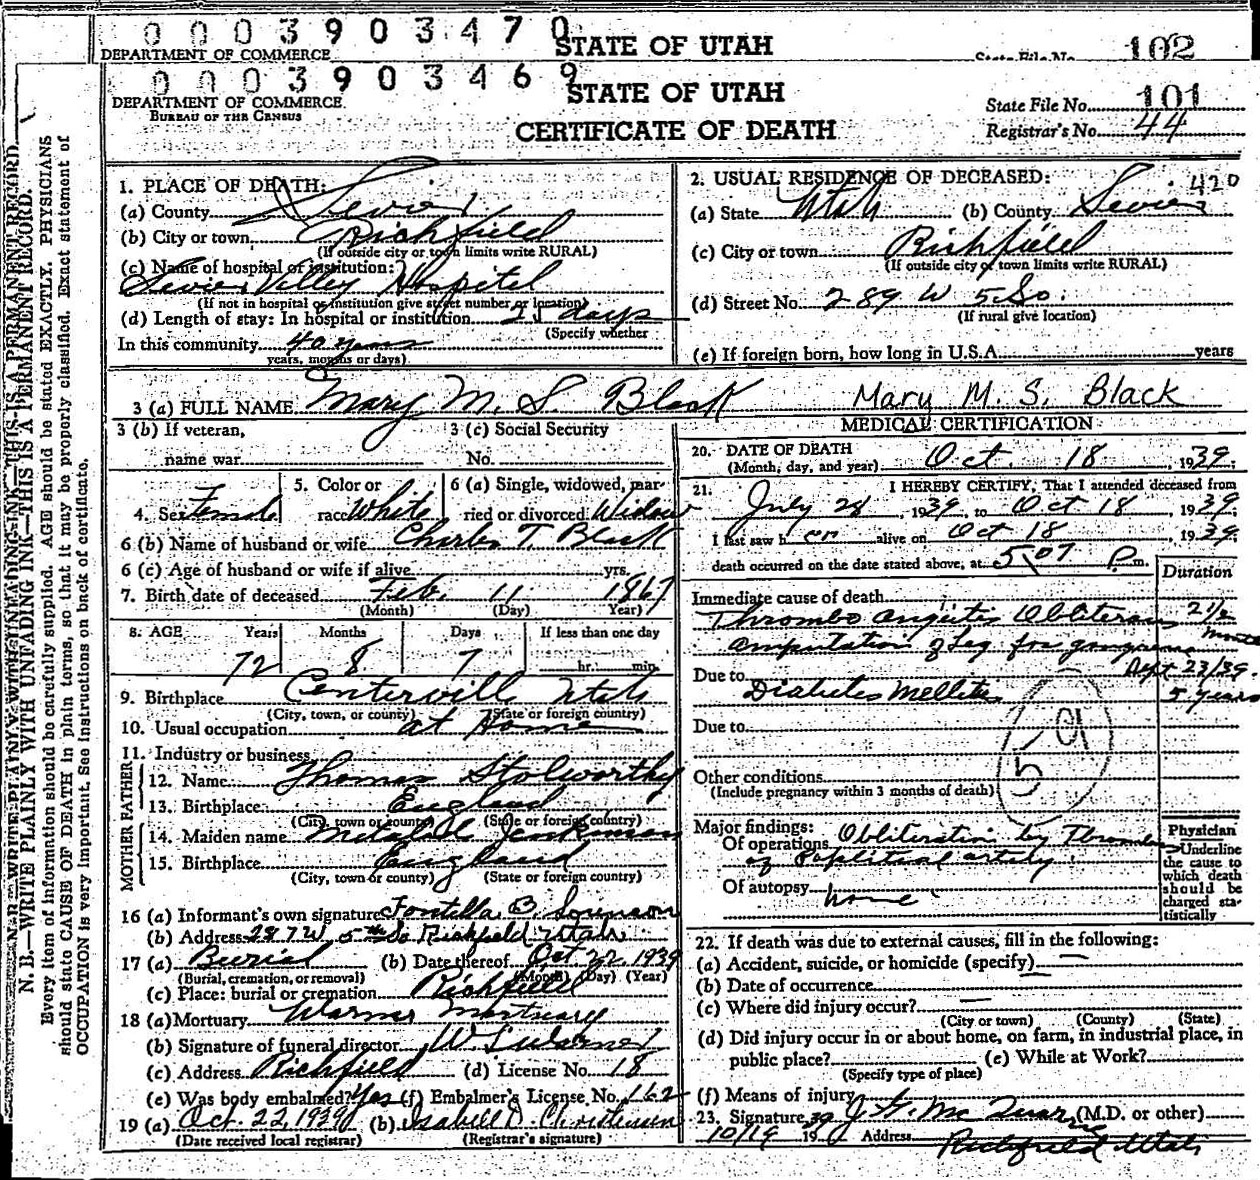 0003903470
STATE OF UTAH
DEPARTMENT OF COMMERCE
State File No. 102
0003903469
STATE OF UTAH
DEPARTMENT OF COMMERCE
BUREAU OF THE CENSUS
CERTIFICATE OF DEATH
State File No. 101
Registrar's No. 44
N. B.—WRITE PLAINLY WITH UNFADING INK—THIS IS A PERMANENT RECORD.
Every item of information should be carefully supplied. AGE should be stated EXACTLY. PHYSICIANS
should state CAUSE OF DEATH in plain terms, so that it may be properly classified. Exact statement of
OCCUPATION is very important. See instructions on back of certificate.
1. PLACE OF DEATH:
(a) County Sevier
(b) City or town Richfield
(If outside city or town limits write RURAL)
(c) Name of hospital or institution:
Sevier Valley Hospital
(If not in hospital or institution give street number or location)
(d) Length of stay: In hospital or institution days
(Specify whether
In this community 40 years
years, months or days)
2. USUAL RESIDENCE OF DECEASED: 420
(a) State Utah (b) County Sevier
(c) City or town Richfield
(If outside city or town limits write RURAL)
(d) Street No. 289 W 5 So.
(If rural give location)
(e) If foreign born, how long in U.S.A. years
3 (a) FULL NAME Mary M. S. Black Mary M. S. Black
3 (b) If veteran, 3 (c) Social Security
name war No.
4. Sex Female 5. Color or race White 6 (a) Single, widowed, married or divorced Widow
6 (b) Name of husband or wife Charles T. Black
6 (c) Age of husband or wife if alive yrs.
7. Birth date of deceased Feb. 11 1867
(Month) (Day) Year)
8. AGE Years Months Days If less than one day
72 8 7 hr. min.
9. Birthplace Centerville Utah
(City, town, or county) (State or foreign country)
10. Usual occupation at Home
11. Industry or business
FATHER
12. Name Thomas Stolworthy
13. Birthplace England
(City, town or county) (State or foreign country)
MOTHER
14. Maiden name Jenkinson
15. Birthplace England
(City, town or county) (State or foreign country)
16 (a) Informant's own signature Fontella B. Sorenson
(b) Address 287 W 5th So Richfield Utah
17 (a) Burial (b) Date thereof Oct 22 1939
(Burial, cremation, or removal) (Month) (Day) (Year)
(c) Place: burial or cremation Richfield
18 (a) Mortuary Warner Mortuary
(b) Signature of funeral director Warner
(c) Address Richfield (d) License No. 18
(e) Was body embalmed? Yes (f) Embalmer's License No. 162
19 (a) Oct. 22, 1939 (b) Isabell D. Christensen
(Date received local registrar) (Registrar's signature)
MEDICAL CERTIFICATION
20. DATE OF DEATH
(Month, day, and year) Oct. 18, 1939.
21. I HEREBY CERTIFY, That I attended deceased from
July 28, 1939, to Oct 18, 1939.
I last saw h er alive on Oct 18, 1939.
death occurred on the date stated above, at 5:07 P. m.
Duration
Immediate cause of death
Thrombo Angiitis Obliterans 2 1/2 months
amputation of Leg for gangrene Sept 23/39.
Due to Diabetes Mellitis 5 years
Due to
Other conditions
(Include pregnancy within 3 months of death)
Major findings:
Of operations Obliteration by Thrombus
of popliteal artery.
Of autopsy none
Physician
Underline
the cause to
which death
should be
charged sta-
tistically
22. If death was due to external causes, fill in the following:
(a) Accident, suicide, or homicide (specify)
(b) Date of occurrence
(c) Where did injury occur?
(City or town) (County) (State)
(d) Did injury occur in or about home, on farm, in industrial place, in
public place? (e) While at Work?
(Specify type of place)
(f) Means of injury
23. Signature (M.D. or other)
10/19 1939 Address Richfield Utah